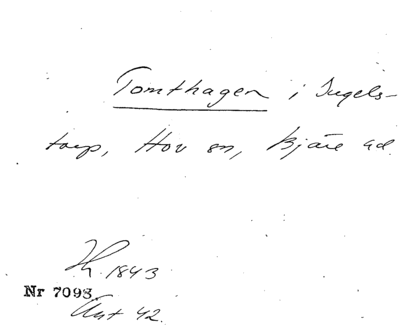 Tomthagen i Ingels-
torp, Hov sn, Bjäre hd.
Th. 1843
Nr 7098.
Ant 42.